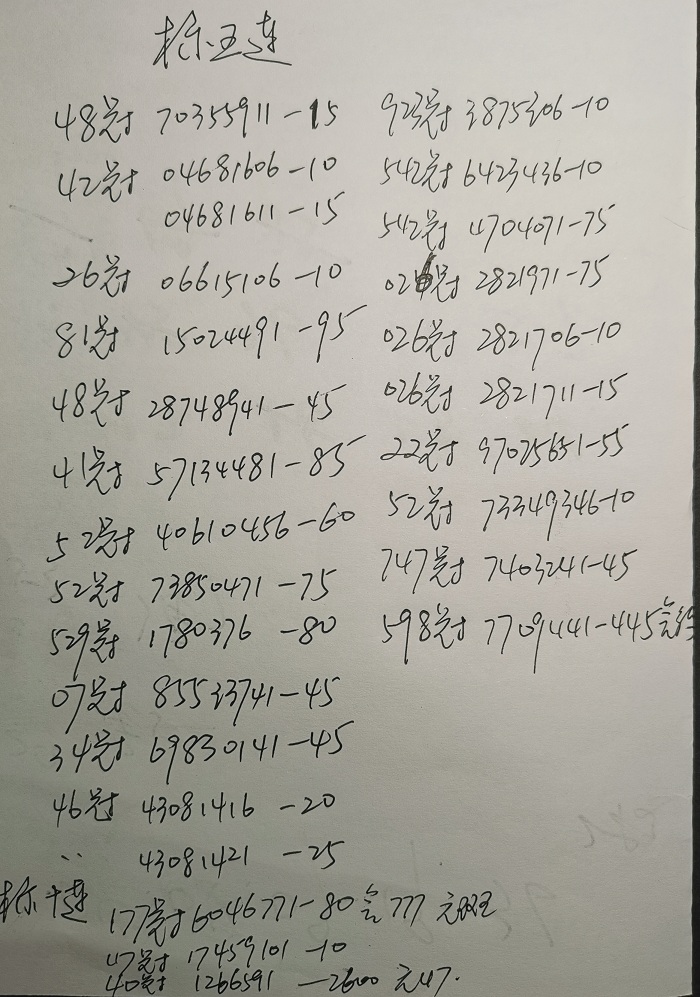 标五连
48冠 70355911-15
42冠 04681606-10
04681611-15
26冠 06615106-10
81冠 15024491-95
48冠 28748941-45
41冠 57134481-85
52冠 40610456-60
52冠 73850471-75
529冠 1780376-80
07冠 85533741-45
34冠 69830141-45
46冠 43081416-20
〃 43081421-25
923冠 3875306-10
542冠 6423436-10
542冠 4704071-75
026冠 2821971-75
026冠 2821706-10
026冠 2821711-15
22冠 97025651-55
52冠 73349346-10
747冠 7403241-45
598冠 7709441-445
标十连
177冠 6046771-80含777 无斑
47冠 17459101-10
40冠 1266591-2600 无47.